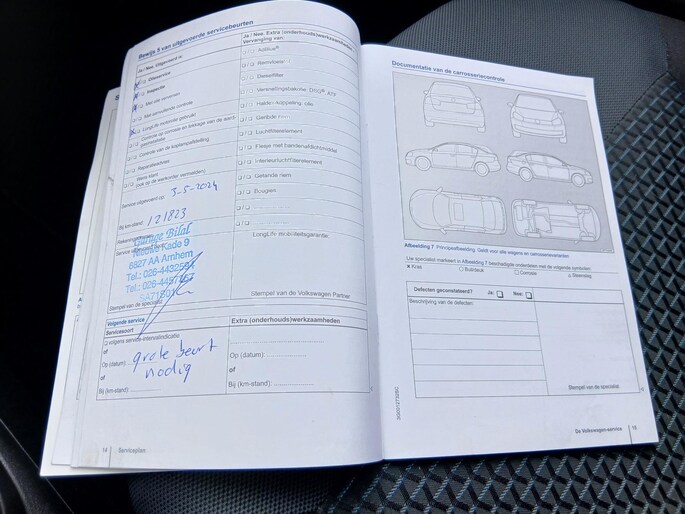 Bewijs 5 van uitgevoerde servicebeurten
Ja / Nee Uitgevoerd is:
Olieservice
Inspectie
Met olie verversen
Met aanvullende controle
LongLife motorolie gebruikt
Controle op corrosie en lekkage van de
Controle van de koplampafstelling
Reparatieadvies
(ook op de werkorder vermelden)
Service uitgevoerd op: 3-5-2024
Bij km-stand: 121823
Garage Bilal
Nieuwe Kade 9
6827 AA Arnhem
Tel.: 026-4432594
Stempel van de specialist
Ja / Nee Extra (onderhouds)werkzaamheden
Vervanging van:
AdBlue®
Remvloeistof
Dieselfilter
Versnellingsbakolie: DSG®
Haldex-koppeling: olie
Getande riem
Luchtfilterelement
Flesje met bandenafdichtmiddel
Interieurluchtfilterelement
Getande riem
Bougies
LongLife mobiliteitsgarantie:
Stempel van de Volkswagen Partner
Volgende service
Servicesoort
volgens service-intervalindicatie
of
Op (datum) grote beurt
of nodig
Bij (km-stand):
Extra (onderhouds)werkzaamheden
Op (datum)
of
Bij (km-stand):
14 Serviceplan
Documentatie van de carrosseriecontrole
Afbeelding 7 Principeafbeelding. Geldt voor alle wagens en carrosserievarianten
Uw specialist markeert in Afbeelding 7 beschadigde onderdelen met de volgende symbolen:
× Kras
○ Buil/deuk
□ Corrosie
△ Steenslag
Defecten geconstateerd? Ja: Nee:
Beschrijving van de defecten:
Stempel van de specialist
De Volkswagen-service 15